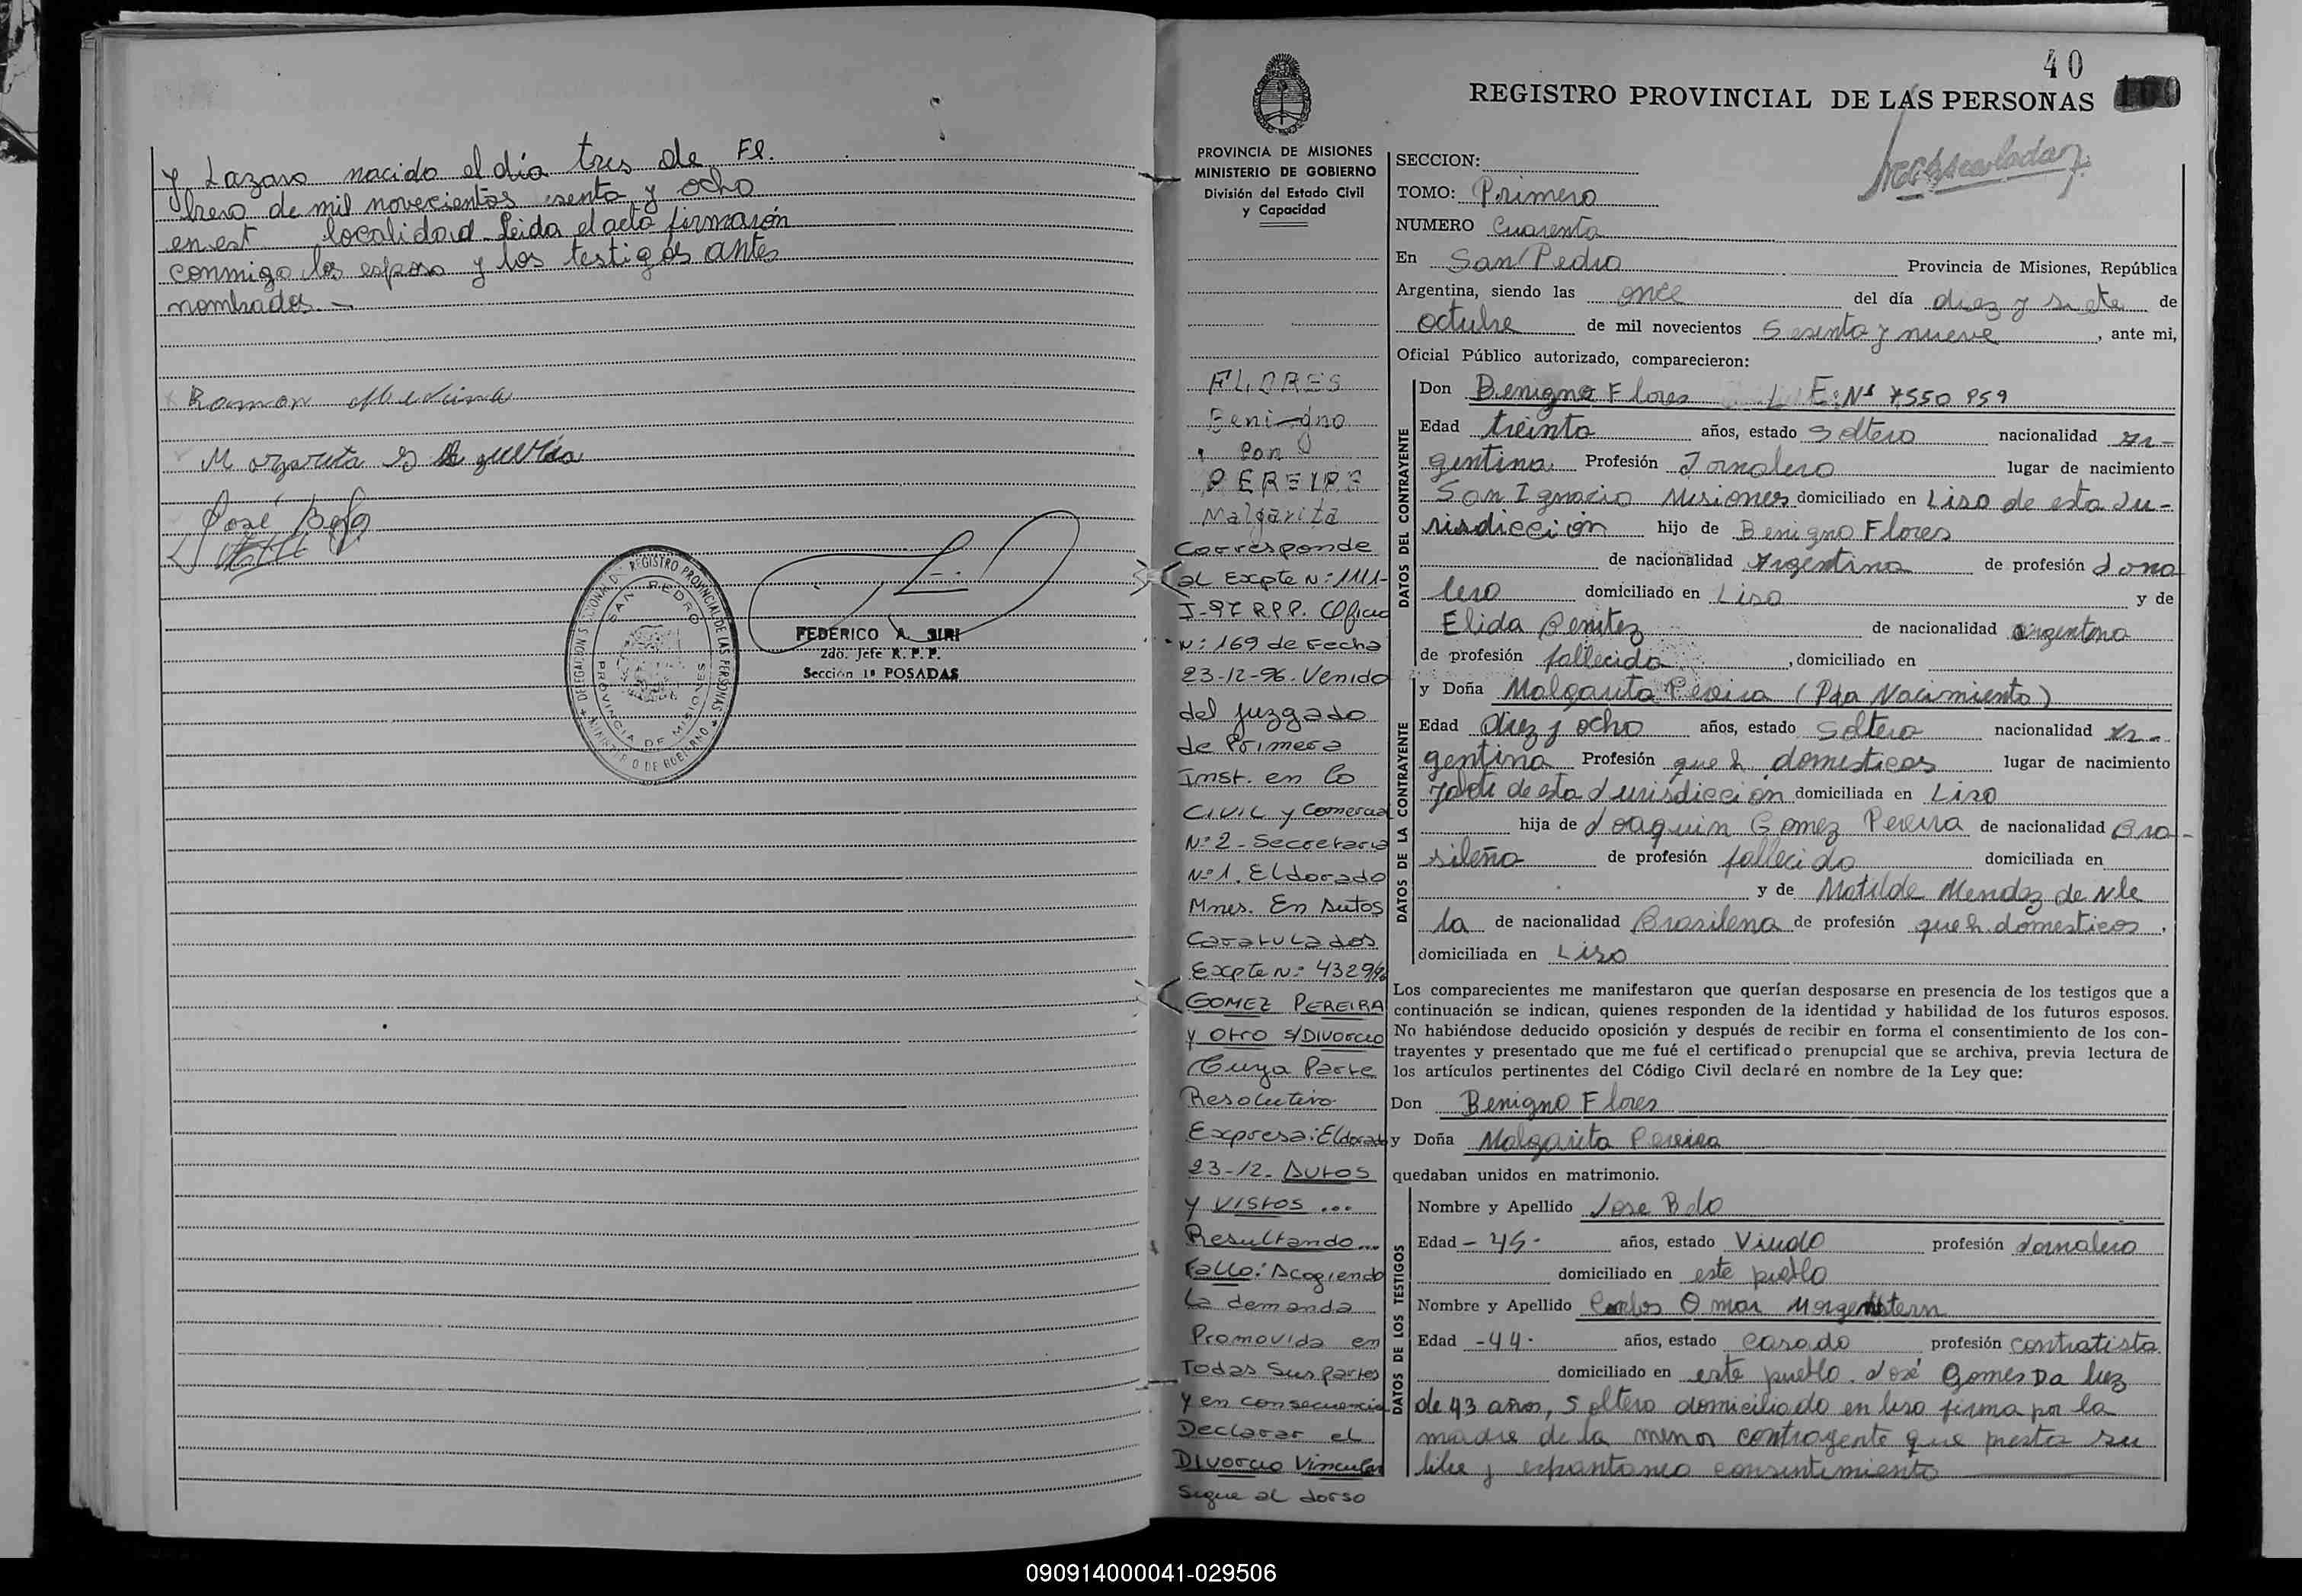 y Lazaro nacido el día tres de Fe.
brero de mil novecientos sesenta y ocho
en est localidad. Leida el acta firmarón
conmigo los esposo y los testigos antes
nombrados.-
Ramon Medina
Margarita
José Belo
DELEGACION SECCIONAL DEL REGISTRO PROVINCIAL DE LAS PERSONAS
SAN PEDRO
PROVINCIA DE MISIONES
MINISTERIO DE GOBIERNO
FEDERICO A. SIRI
2do. Jefe R. P. P.
Sección 1ª POSADAS
40
REGISTRO PROVINCIAL DE LAS PERSONAS
PROVINCIA DE MISIONES
MINISTERIO DE GOBIERNO
División del Estado Civil
y Capacidad
FLORES
Benigno
Con
PEREIRA
Malgarita
Corresponde
al Expte N:1111-
J-97 R.P.P. Oficio
N: 169 de Fecha
23-12-96. Venido
del juzgado
de Primera
Inst. en lo
Civil y Comercial
Nº2 - Secretaria
Nº1. Eldorado
Mnes. En Autos
Caratulados
Expte N: 4329/96
GOMEZ PEREIRA
y Otro s/Divorcio
Cuya Parte
Resolutiva
Expresa: Eldorado
23-12- Autos
y Vistos ...
Resultando...
Fallo: Acogiendo
la demanda
Promovida en
Todas Sus partes
y en consecuencia
Declarar el
Divorcio Vincular
Sigue al dorso
SECCION:
TOMO: Primero
NUMERO Cuarenta
En San Pedro Provincia de Misiones, República
Argentina, siendo las once del día diez y siete de
octubre de mil novecientos Sesenta y nueve, ante mi,
Oficial Público autorizado, comparecieron:
DATOS DEL CONTRAYENTE
Don Benigno Flores L E: Nº 7550959
Edad treinta años, estado Soltero nacionalidad Ar-
gentina Profesión Jornalero lugar de nacimiento
San Ignacio Misiones domiciliado en Liso de esta Ju-
risdicción hijo de Benigno Flores
de nacionalidad Argentina de profesión Jorna
lero domiciliado en Liso y de
Elida Benitez de nacionalidad argentina
de profesión fallecida, domiciliado en
DATOS DE LA CONTRAYENTE
y Doña Malgarita Pereira (Pda Nacimiento)
Edad diez y ocho años, estado Soltera nacionalidad Ar-
gentina Profesión queh domesticos lugar de nacimiento
de esta Jurisdicción domiciliada en Liso
hija de Joaquin Gomez Pereira de nacionalidad Bra-
sileña de profesión fallecido domiciliada en
y de Matilde Mendez de Vile
la de nacionalidad Brasilena de profesión queh domesticos,
domiciliada en Liso
Los comparecientes me manifestaron que querían desposarse en presencia de los testigos que a
continuación se indican, quienes responden de la identidad y habilidad de los futuros esposos.
No habiéndose deducido oposición y después de recibir en forma el consentimiento de los con-
trayentes y presentado que me fué el certificado prenupcial que se archiva, previa lectura de
los artículos pertinentes del Código Civil declaré en nombre de la Ley que:
Don Benigno Flores
y Doña Malgarita Pereira
quedaban unidos en matrimonio.
DATOS DE LOS TESTIGOS
Nombre y Apellido Jose Belo
Edad -45- años, estado Viudo profesión Jornalero
domiciliado en este pueblo
Nombre y Apellido Carlos Omar Morgenstern
Edad -44- años, estado casado profesión contratista
domiciliado en este pueblo. José Gomes Da luz
de 43 años, Soltero domiciliado en liso firma por la
madre de la menor contrayente que presta su
libre y espontaneo consentimiento
090914000041-029506